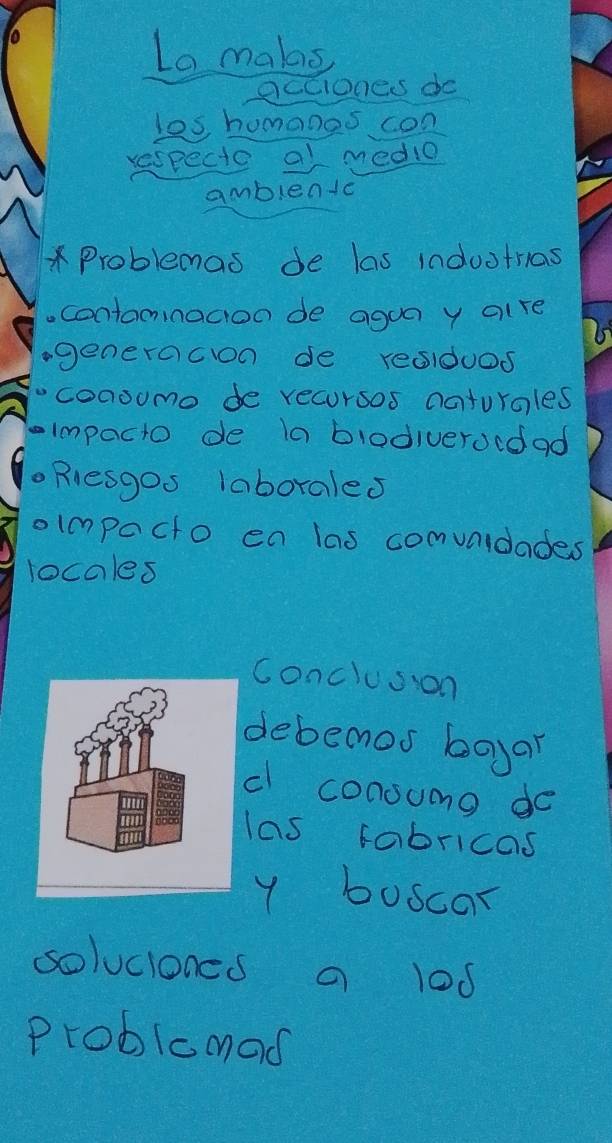 La malas
acciones de
los humanos con
respecto al medio
ambiente
* Problemas de las industrias
• contaminacion de agua y aire
• generacion de residuos
• consumo de recursos naturales
• impacto de la biodiversidad
• Riesgos laborales
• impacto en las comunidades
locales
Conclusion
debemos bajar
el consumo de
las fabricas
y buscar
soluciones a los
problemas